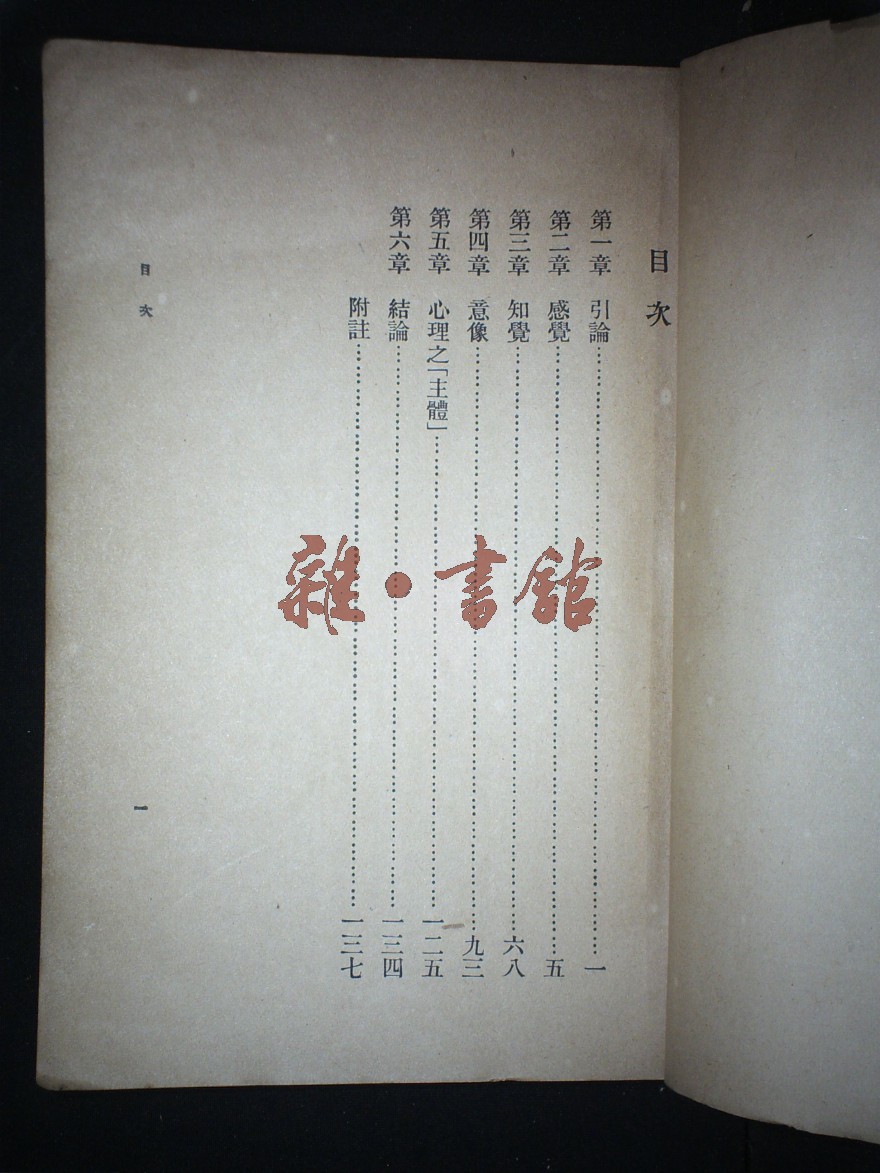 目次
第一章 引論……一
第二章 感覺……五
第三章 知覺……六八
第四章 意像……九三
第五章 心理之「主體」……一二五
第六章 結論……一三四
附註……一三七
目次
一
雜·書館